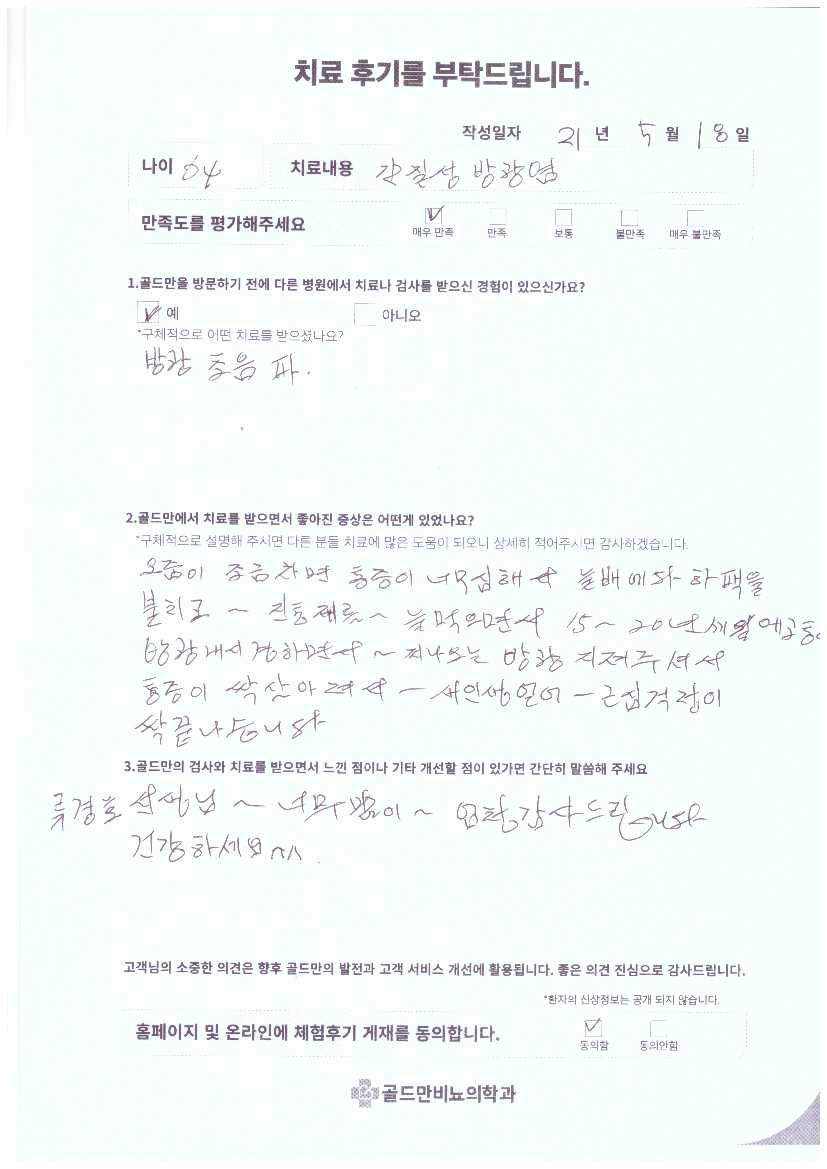 치료 후기를 부탁드립니다.
작성일자 21 년 5 월 18 일
나이 64 치료내용 간질성 방광염
만족도를 평가해주세요
매우 만족 만족 보통 불만족 매우 불만족
1.골드만을 방문하기 전에 다른 병원에서 치료나 검사를 받으신 경험이 있으신가요?
예 아니오
*구체적으로 어떤 치료를 받으셨나요?
방광 초음파.
2.골드만에서 치료를 받으면서 좋아진 증상은 어떤게 있었나요?
*구체적으로 설명해 주시면 다른 분들 치료에 많은 도움이 되오니 상세히 적어주시면 감사하겠습니다.
오줌이 조금차면 통증이 너무심해서 늘배에다 하팩을
붙치고 ~ 진통제를 ~ 늘먹으면서 15 ~ 20년세월
방광내시경하면서 ~ 방광 지져주셔서
통증이 싹 사 - 새인생 얻어 -
싹끝나습니다
3.골드만의 검사와 치료를 받으면서 느낀 점이나 기타 개선할 점이 있가면 간단히 말씀해 주세요
류경호 선생님 ~ 너무 많이 ~ 감사드림니다
건강하세요 ^^.
고객님의 소중한 의견은 향후 골드만의 발전과 고객 서비스 개선에 활용됩니다. 좋은 의견 진심으로 감사드립니다.
*환자의 신상정보는 공개 되지 않습니다.
홈페이지 및 온라인에 체험후기 게재를 동의합니다.
동의함 동의안함
골드만비뇨의학과